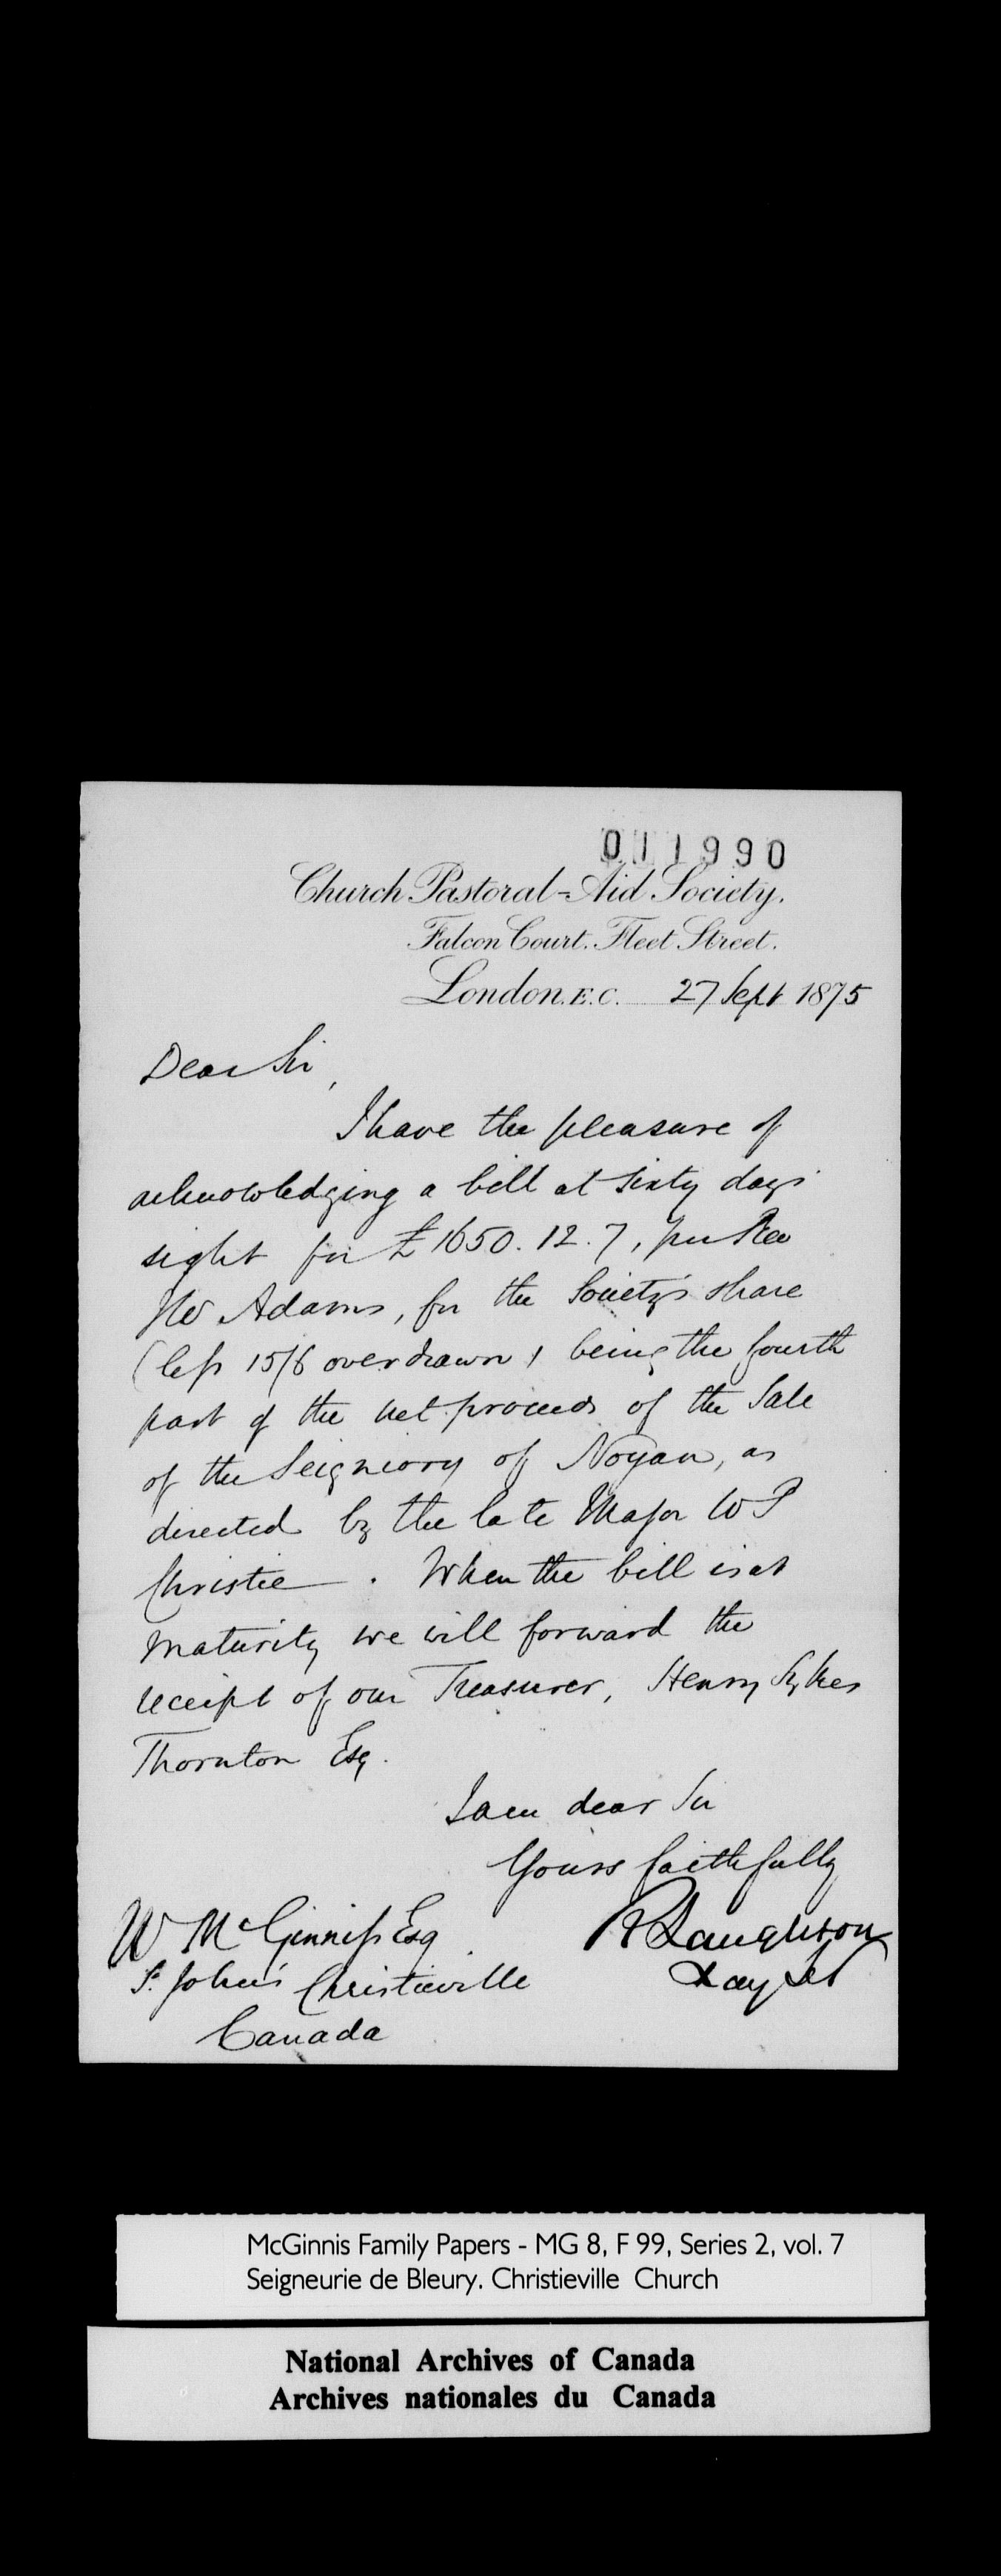 011990
Church Pastoral-Aid Society.
Falcon Court. Fleet Street.
London. E.C. 27 Sept 1875
Dear Sir,
I have the pleasure of
acknowledging a bill at sixty days
sight for £1650.12.7, per Rev
Adams, for the Society's share
(less 15/6 overdrawn) being the fourth
part of the net proceeds of the Sale
of the Seigniory of Noyan, as
directed by the late Major W P
Christie. When the bill is at
maturity we will forward the
receipt of our Treasurer, Henry Sykes
Thornton Esq.
I am dear Sir
Yours faithfully
W McGinniss Esq.
St. John's Christieville
Canada
Lay
McGinnis Family Papers - MG 8, F 99, Series 2, vol. 7
Seigneurie de Bleury. Christieville Church
National Archives of Canada
Archives nationales du Canada